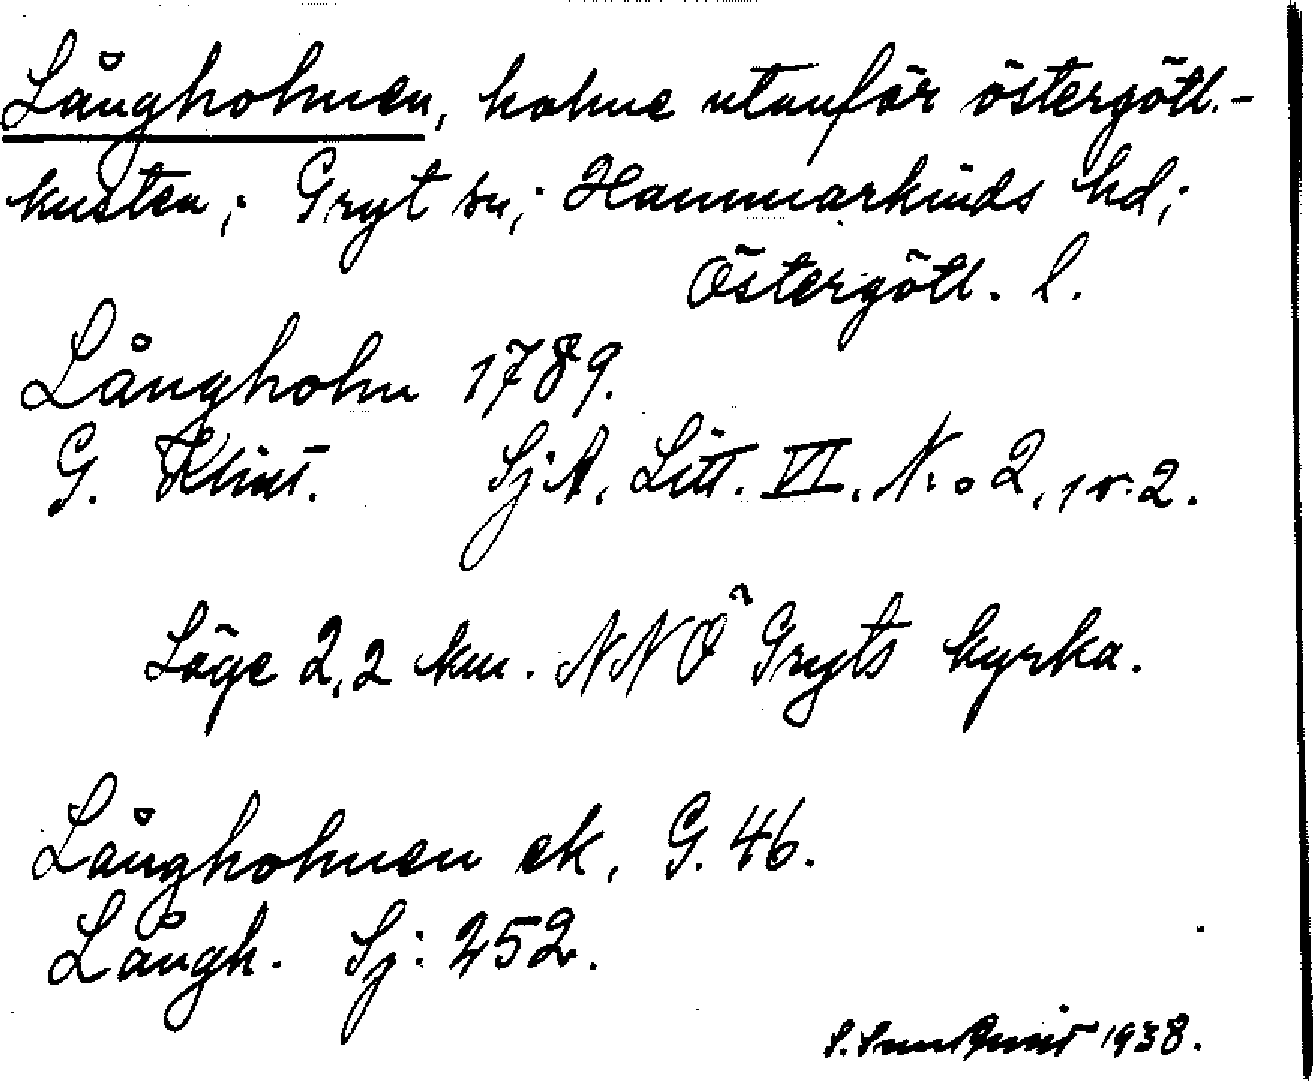 Långholmen, holme utanför östergötl.-
kusten; Gryt sn; Hammarkinds hd;
Östergötl. l.
Långholm 1789.
G. Klint. SjA, Litt. VI. N:o 2, 1 v. 2.
Läge 2,2 km. NNÖ Gryts kyrka.
Långholmen ek, G. 46.
Långh. Sj: 252.
1938.